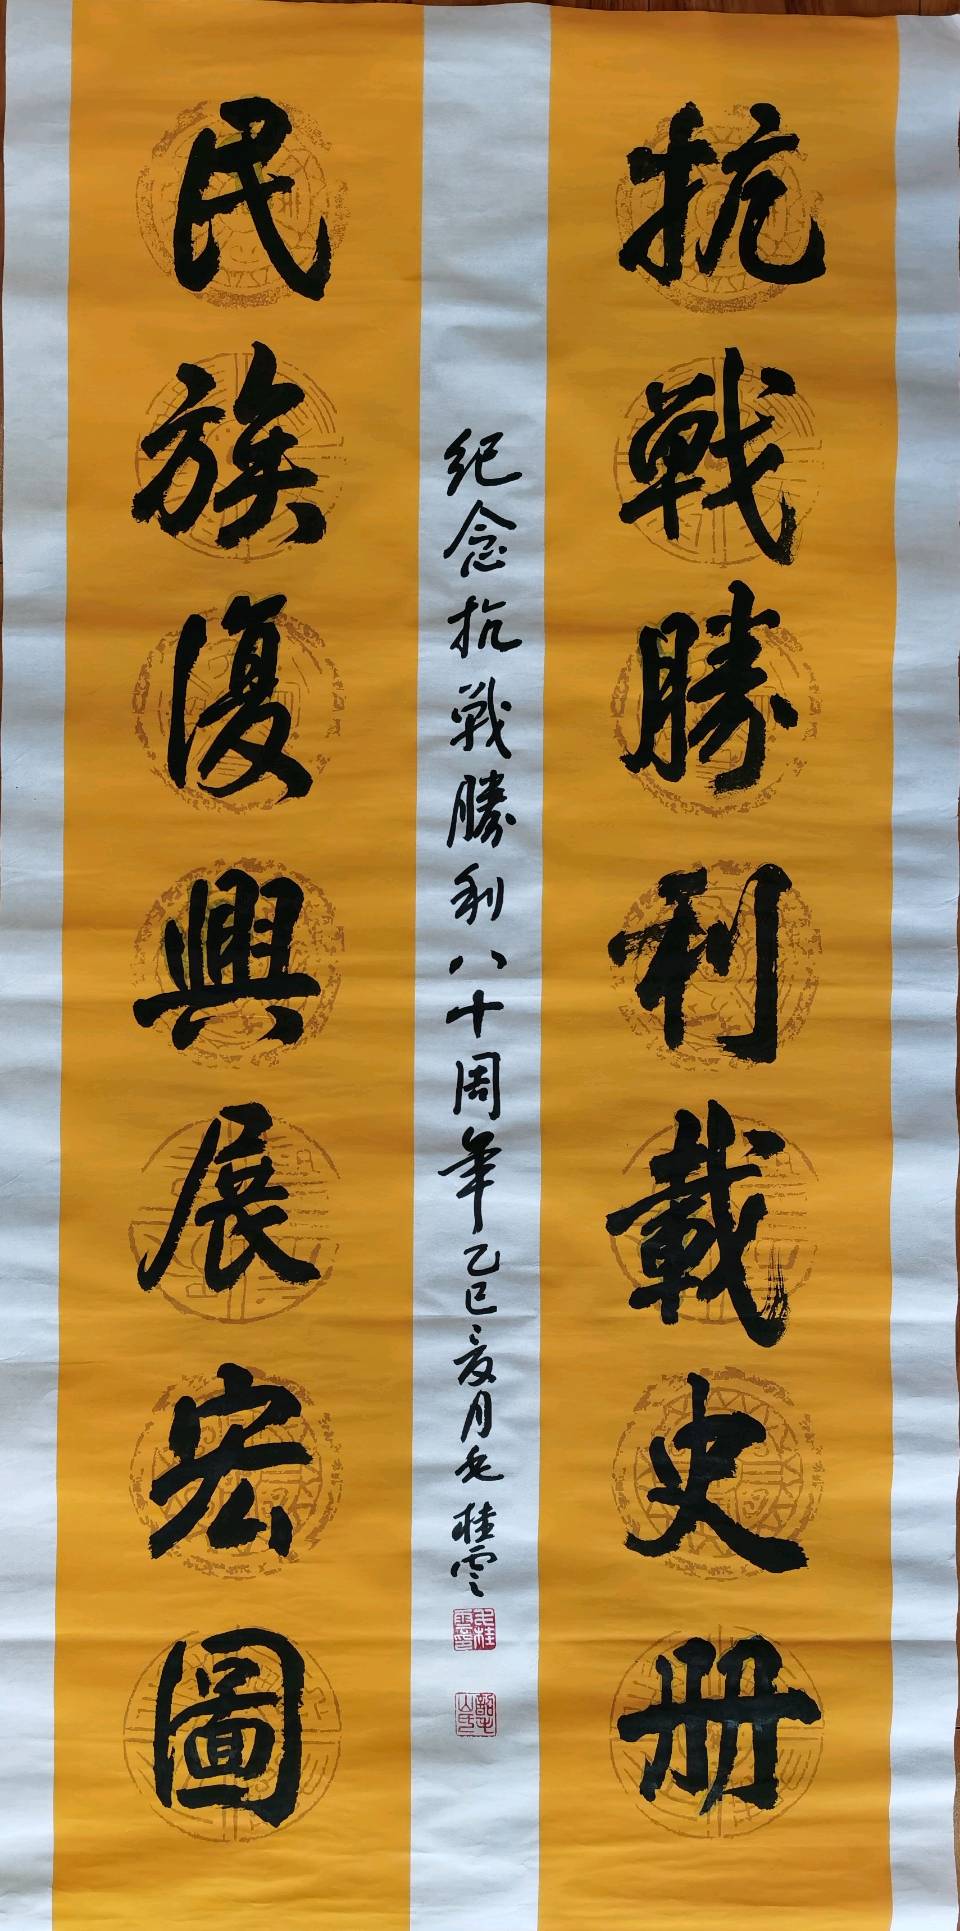 抗戰勝利載史册
紀念抗戰勝利八十周年乙巳夏月 桂雲
民族復興展宏圖